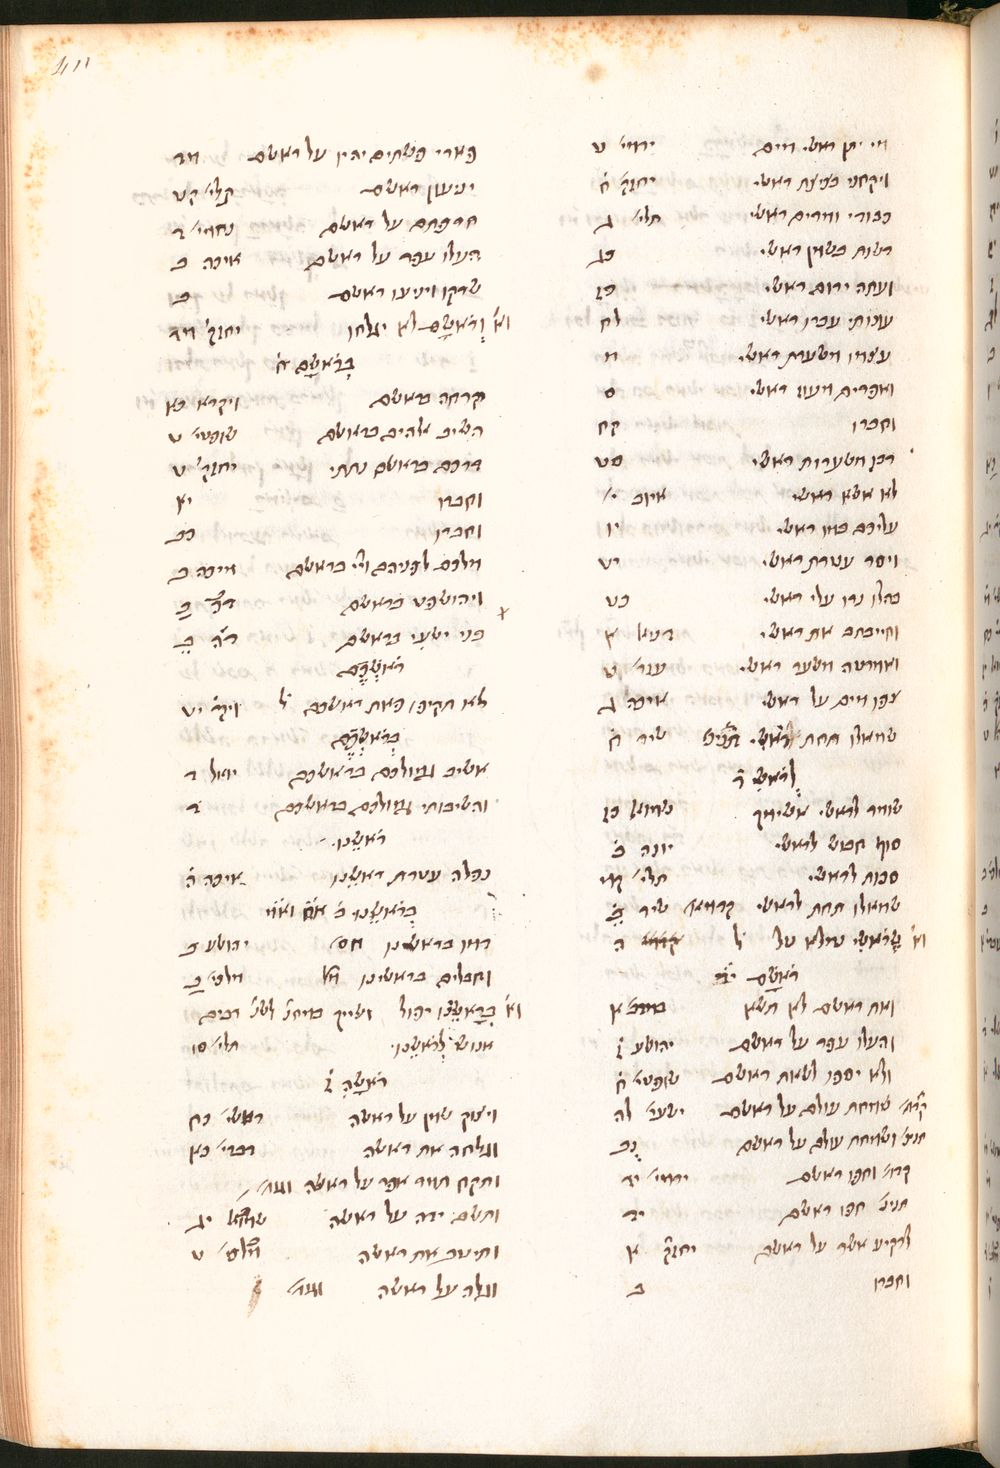 מי יתן ראשי מים ירמי׳ ט
ויקחני בציצת ראשי יחזק׳ ח
כבודי ומרים ראשי תלי׳ ג
דשנת בשמן ראשי כג
ועתה ירום ראשי כז
עונותי עברו ראשי לח
עצמו משערות ראשי מ
ואפרים מעוז ראשי ס
וחברו קח
רבו משערות ראשי סט
לא אשא ראשי איוב י׳
עליכם במו ראשי יו
ויסר עטרת ראשי יט
בהלו נרו עלי ראשי כט
וחייבתם את ראשי דניא א
ואמרטה משער ראשי עזר׳ ט
צפו מים על ראשי איכה ג
שמאלו תחת לראשי שיר ח
לראשי ד
שומר לראשי אשימך שמוא כז
סוף חבוש לראשי יונה ב
סכות לראשי תלי׳ קמ
שמאלו תחת לראשי קדמא׳ שיר ב
וא׳ שראשי נמלא טל ל ה
ראשם
ואת ראשם לא תשא א
והעלו עפר על ראשם יהושע ז
ולא יספו לשאת ראשם שופטי׳ ח
קדמ׳ שמחת עולם על ראשם ישעי׳ לה
תנינ׳ ושמחת עולם על ראשם נב
קדמ׳ וחפו ראשם ירמי׳ יד
תנינ׳ חפו ראשם יד
לרקיע אשר על ראשם יחזק׳ א
וחברו ב
פארי פשתים יהיו על ראשם מד
יניעון ראשם תלי׳ קט
חרפתם על ראשם נחמי׳ ג
העלו עפר על ראשם איכה ב
שרקו ויניעו ראשם ב
וא׳ וראשם לא יגלחו יחזק׳ מד
בראשם ח
קרחה בראשם ויקרא כא
השיב אלהים בראשם שופטי׳ ט
דרכם בראשם נתתי יחזק׳ ט
וחברו יא
וחברו כב
מלכם לפניהם ויי׳ בראשם מיכה ב
ויהושפט בראשם דה ב
בני ישעי בראשם דה
ראשכם
לא תקיפו פאת ראשכם ל ויקר׳ יט
בראשכם
אשיב גמולכם בראשכם יואל ד
והשיבותי גמולכם בראשכם ד
ראשנו
נפלה עטרת ראשנו איכה ה
בראשנו
דמו בראשנו חס׳ יהושע ב
וחבלים בראשינו מל׳ מלכי׳
וא׳ בראשנו יפול
אנוש לראשנו תלי׳ סו
ראשה ז
ויצוק שמן על ראשה ראשי׳ כח
וגלחה את ראשה דברי׳ כא
ותקח תמר אפר על ראשה
ותשם ידה על ראשה יג
ותיטב את ראשה מלכי׳ ט
וגלה על ראשה